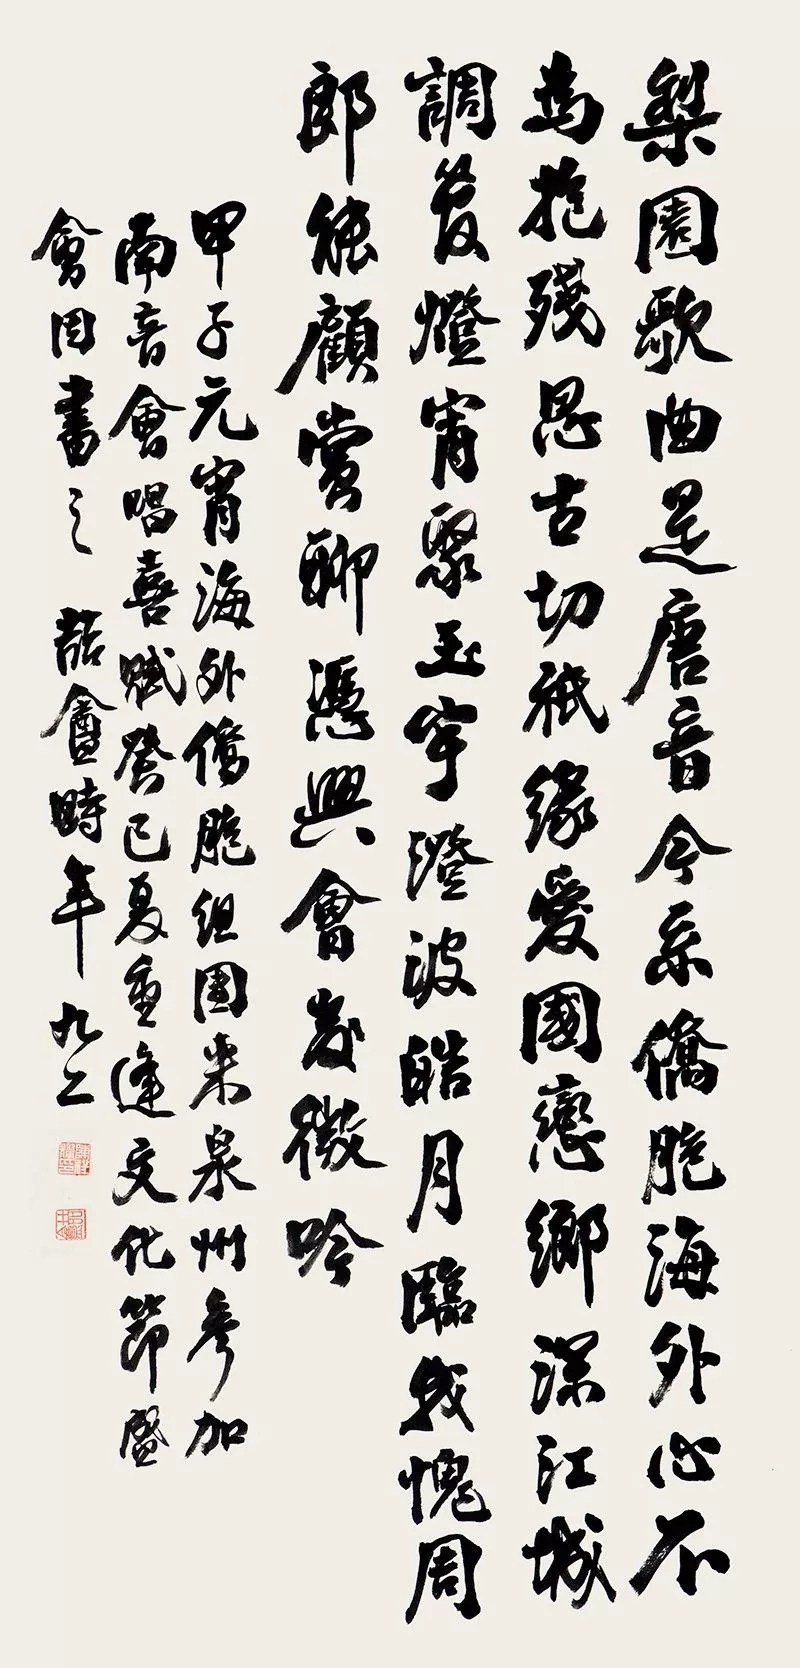 梨園歌曲是唐音今系僑胞海外心不
為抱殘思古切祇緣愛國戀鄉深江城
調發燈宵聚玉宇澄波皓月臨我愧周
郎能顧賞聊憑興會發微吟
甲子元宵海外僑胞組團来泉州參加
南音會唱喜賦癸巳夏重逢文化節盛
會因書之 喆盦時年九二